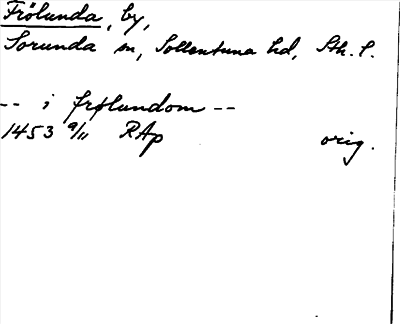 Frölunda, by,
Sorunda sn, Sollentuna hd, Sth. l.
-- i frølundom --
1453 9/11 RAp orig.